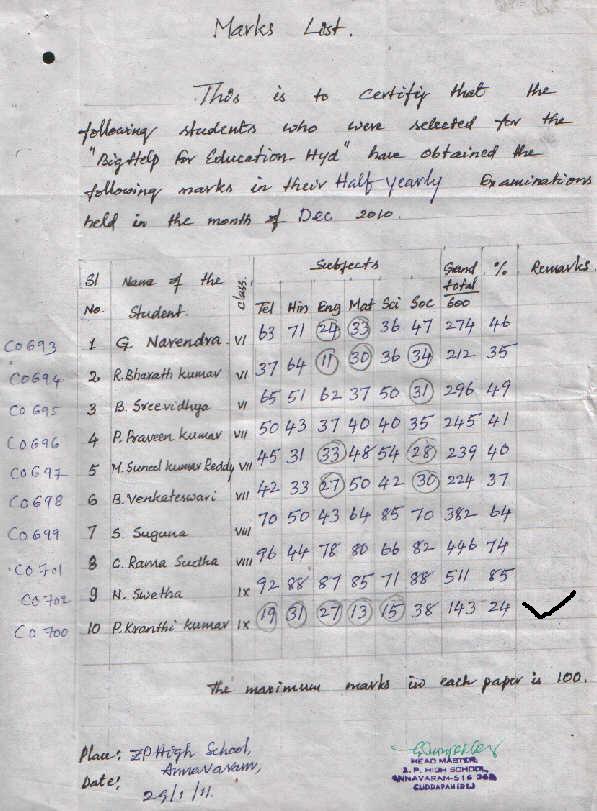 Marks List.
This is to certify that the
following students who were selected for the
"Big Help for Education - Hyd" have obtained the
following marks in their Half yearly Examinations
held in the month of Dec 2010.
Sl No. Name of the Student. Class. Subjects Grand total 600 % Remarks.
Tel Hin Eng Mat Sci Soc
CO693 1 G. Narendra VI 63 71 24 33 36 47 274 46
CO694 2 R. Bharath kumar VI 37 64 11 30 36 34 212 35
CO695 3 B. Sreevidhya VI 65 51 62 37 50 31 296 49
CO696 4 P. Praveen kumar VII 50 43 37 40 40 35 245 41
CO697 5 M. Suneel kumar Reddy VII 45 31 33 48 54 28 239 40
CO698 6 B. Venkateswari VII 42 33 27 50 42 30 224 37
CO699 7 S. Suguna VIII 70 50 43 64 85 70 382 64
CO701 8 C. Rama Sudha VIII 96 44 78 80 66 82 446 74
CO702 9 N. Swetha IX 92 88 87 85 71 88 511 85
CO700 10 P. Kranthi kumar IX 19 31 27 13 15 38 143 24
The maximum marks in each paper is 100.
Place: ZP High School,
Annavaram,
Date: 29/1/11.
HEAD MASTER
Z. P. HIGH SCHOOL,
ANNAVARAM-516
CUDDAPAH (Dt)